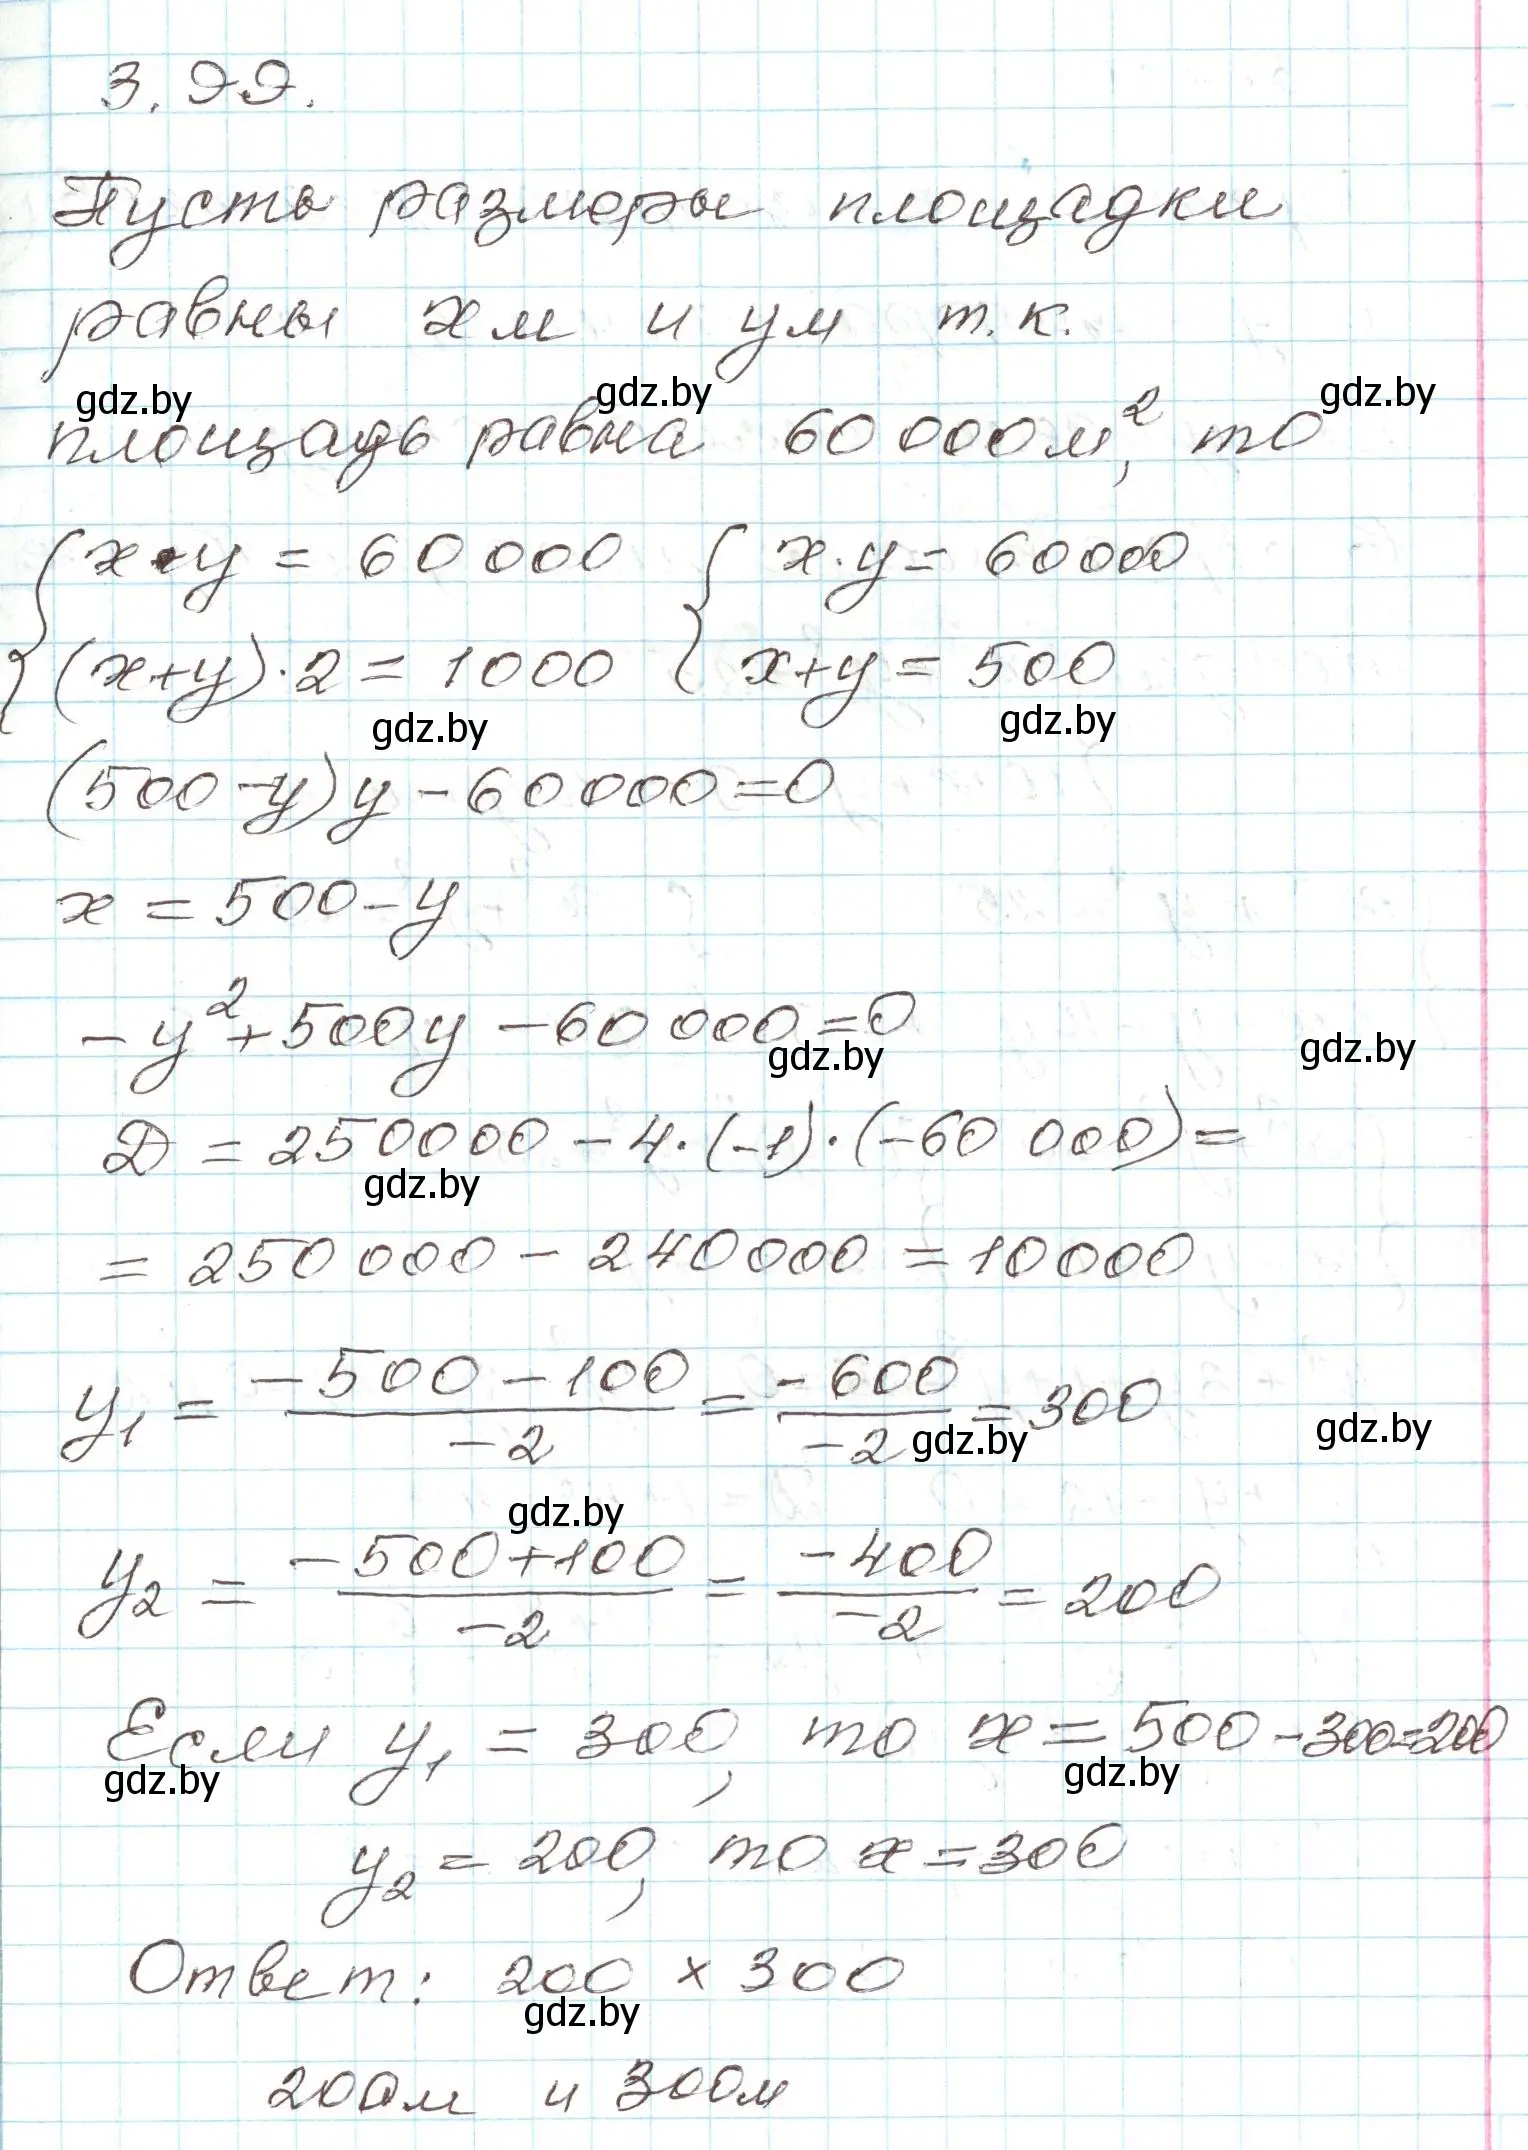 3.99.
Пусть размеры площадки
равны xм и yм т.к.
gdz.by gdz.by gdz.by
площадь равна 60 000 м², то
{ x·y = 60 000 { x·y = 60000
(x+y)·2 = 1000 x+y = 500
gdz.by gdz.by
(500-y)y - 60000 = 0
x = 500 - y
-y² + 500y - 60 000 = 0
gdz.by gdz.by
Д = 250000 - 4·(-1)·(-60 000) =
gdz.by
= 250 000 - 240000 = 10000
y₁ = (-500 - 100)/(-2) = (-600)/(-2) = 300
gdz.by gdz.by
gdz.by
y₂ = (-500+100)/(-2) = (-400)/(-2) = 200
Если y₁ = 300, то x = 500 - 300 = 200
gdz.by gdz.by
y₂ = 200, то x = 300
Ответ: 200 × 300
gdz.by
200м и 300м